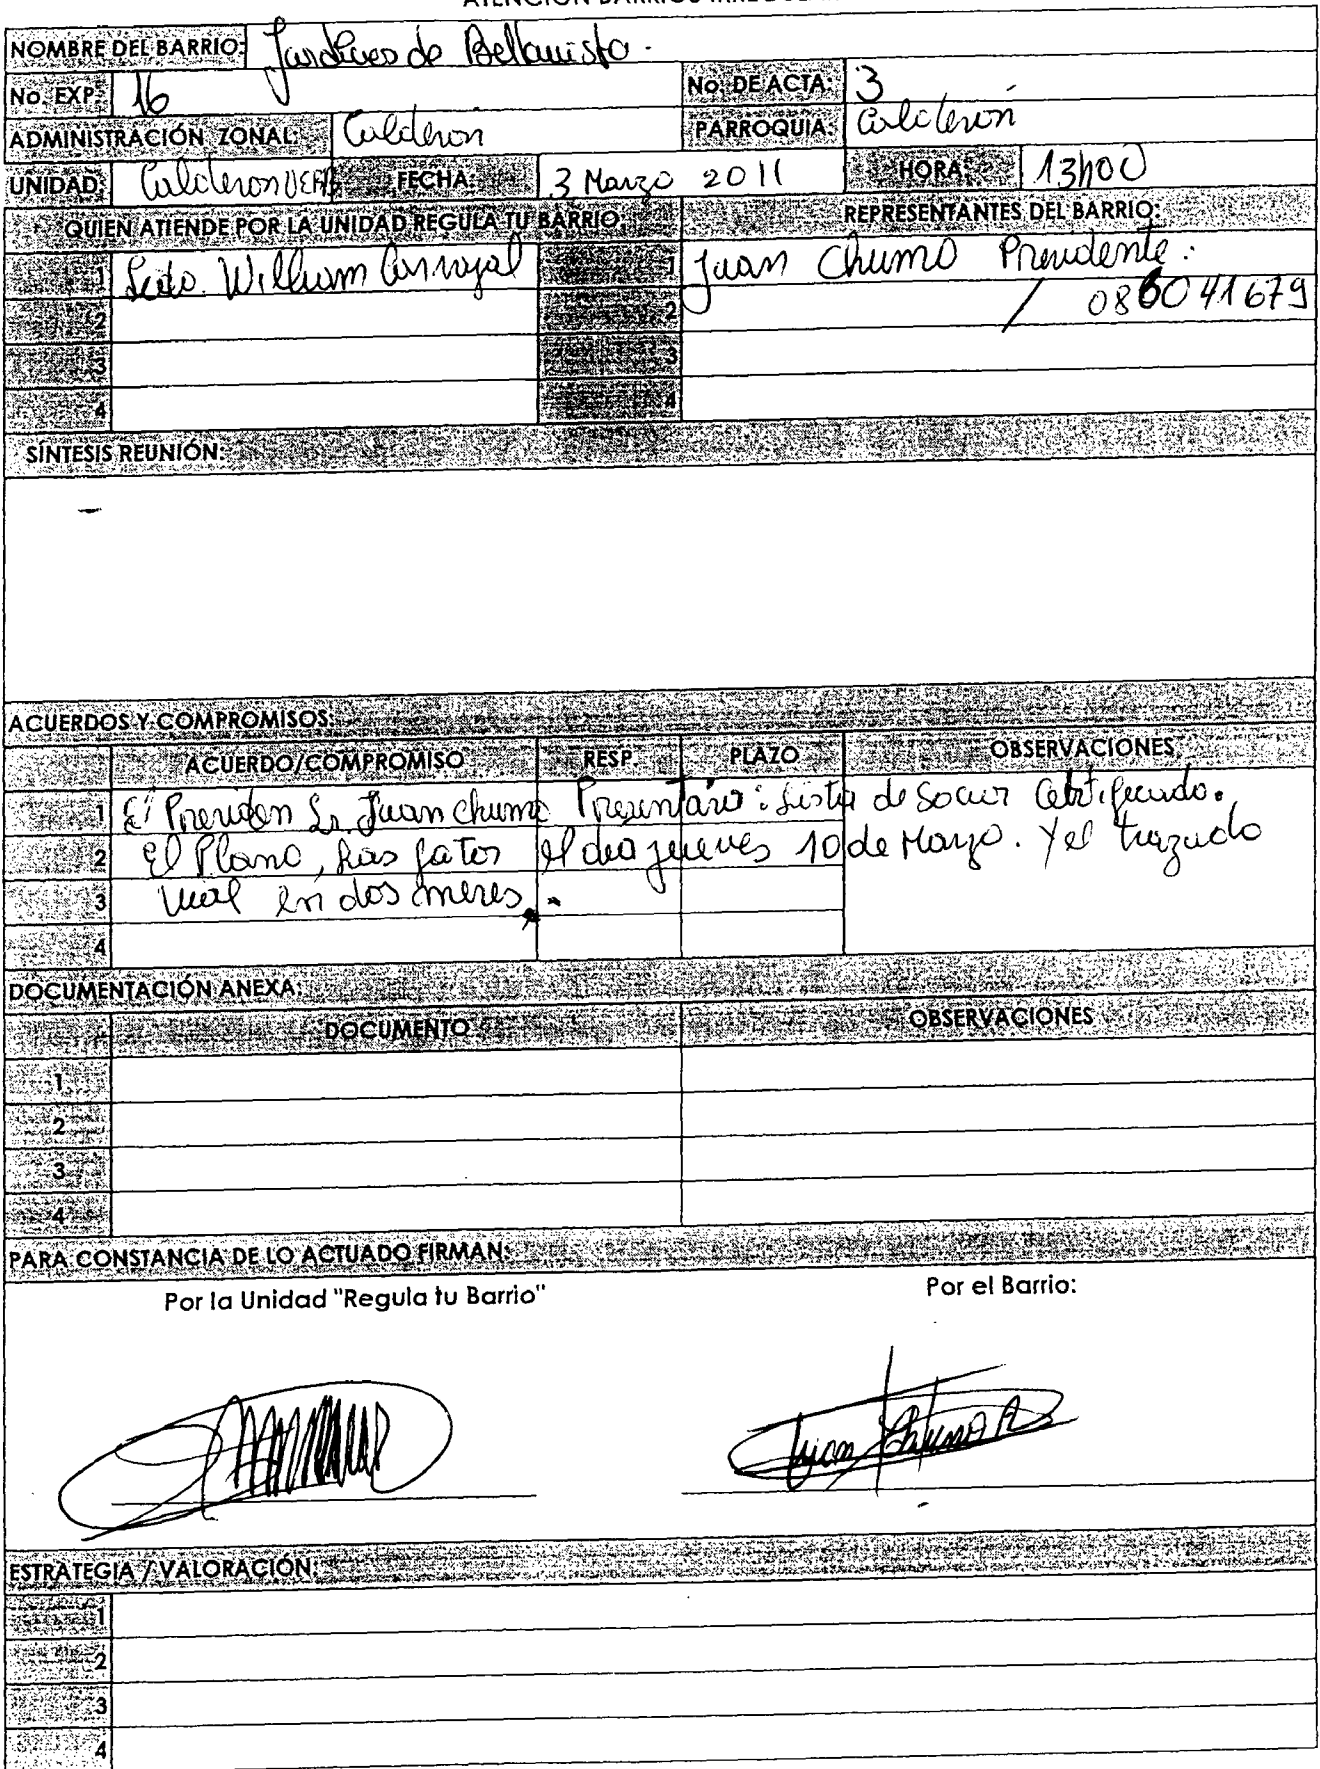 ATENCIÓN BARRIOS
NOMBRE DEL BARRIO: Jardines de Bellavista.
No. EXP. 16 No. DE ACTA: 3
ADMINISTRACIÓN ZONAL: Calderón PARROQUIA: Calderón
UNIDAD: Calderon FECHA: 3 Marzo 2011 HORA: 13h00
QUIEN ATIENDE POR LA UNIDAD REGULA TU BARRIO: REPRESENTANTES DEL BARRIO:
1 Lcdo. William Carvajal 1 Juan Chumo Presidente.
2 2 / 086041679
3 3
4 4
SÍNTESIS REUNIÓN:
ACUERDOS Y COMPROMISOS:
ACUERDO/COMPROMISO RESP. PLAZO OBSERVACIONES
1 El Presiden Sr. Juan Chumo Presentara: Lista de Socios Certificado.
2 El Plano, las fatos el dia jueves 10 de Marzo. Y el trazado
3 vial en dos meses.
4
DOCUMENTACIÓN ANEXA:
DOCUMENTO OBSERVACIONES
1
2
3
4
PARA CONSTANCIA DE LO ACTUADO FIRMAN:
Por la Unidad "Regula tu Barrio" Por el Barrio:
Juan Chumo R
ESTRATEGIA / VALORACIÓN:
1
2
3
4